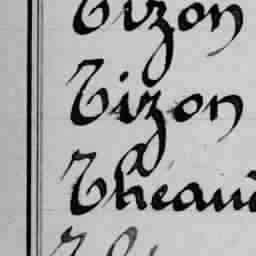 Tizon
Tizon
Theaud